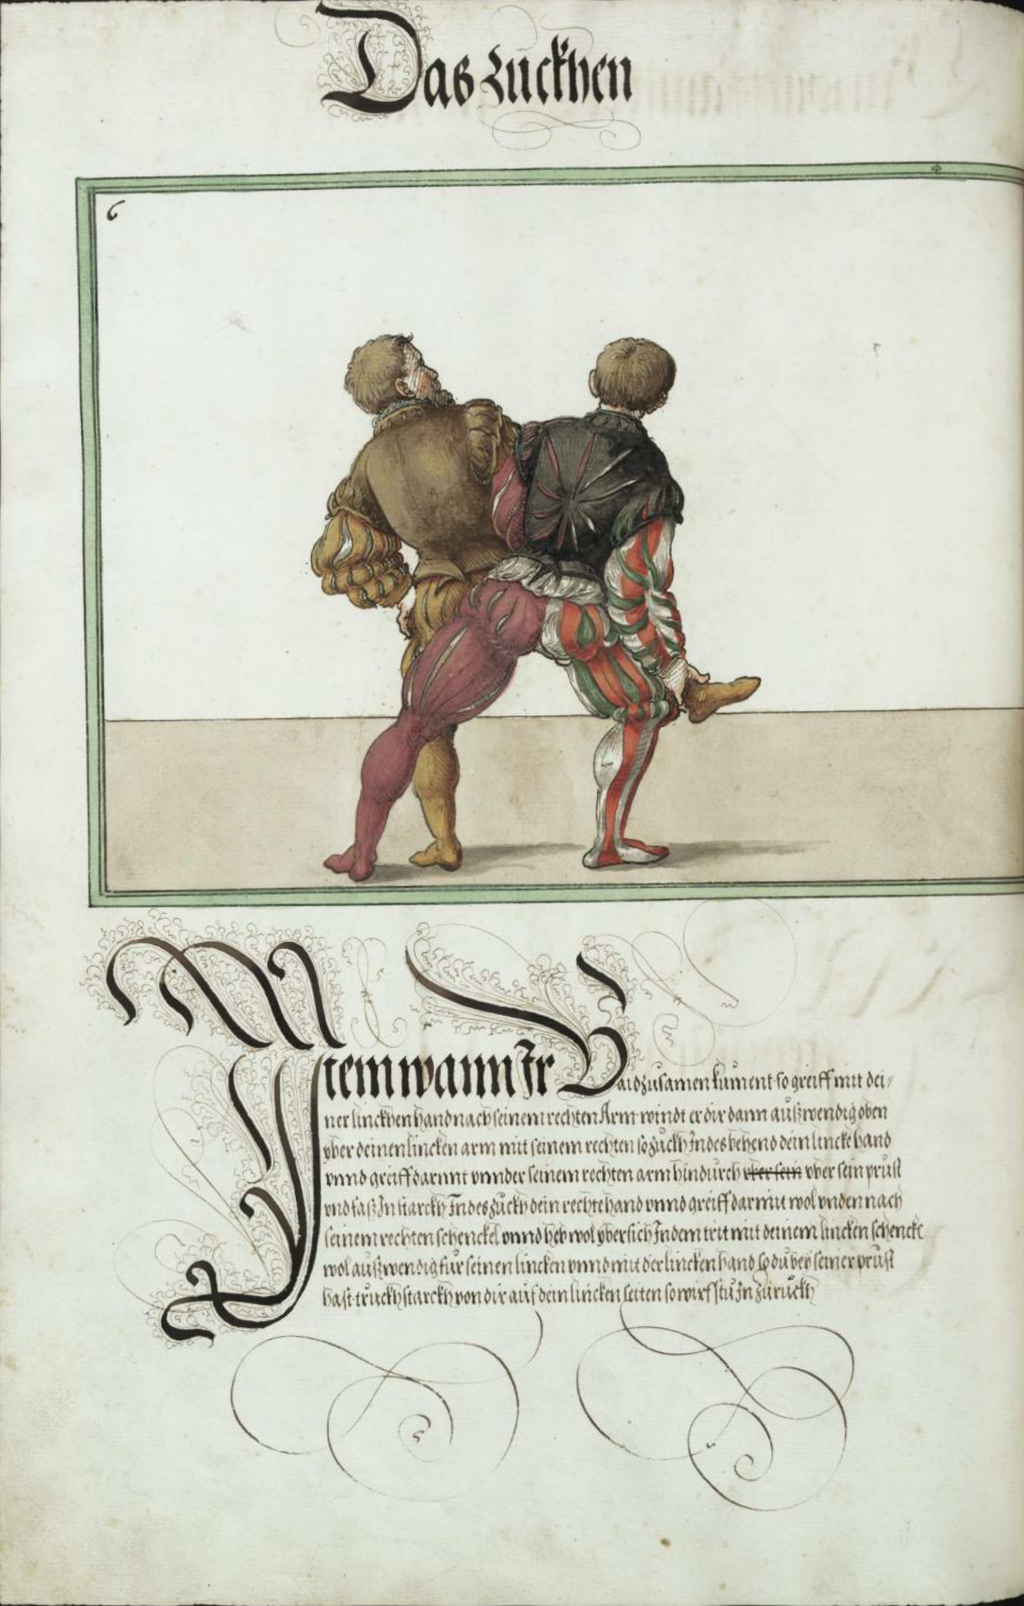 Das zuckhen
6
Item wann Ir Baid zusamen kument so greiff mit dei/
ner linckhen hand nach seinem rechten Arm windt er dir dann außwendig oben
yber deinen lincken arm mit seinem rechten so zuckh Indes behend dein lincke hand
vnnd greiff darmit vnnder seinem rechten arm hindurch vber sein vber sein prust
vnd faß In starckh Indes zuckh dein rechte hand vnnd greiff darmit wol vnden nach
seinem rechten schenckel vnnd heb wol ybersich Indem trit mit deinem lincken schenckel
wol außwendig für seinen lincken vnnd mit der lincken hand so du vber seiner prust
hast truckh starckh von dir auf dein lincken seiten so wirfstu In zuruckh